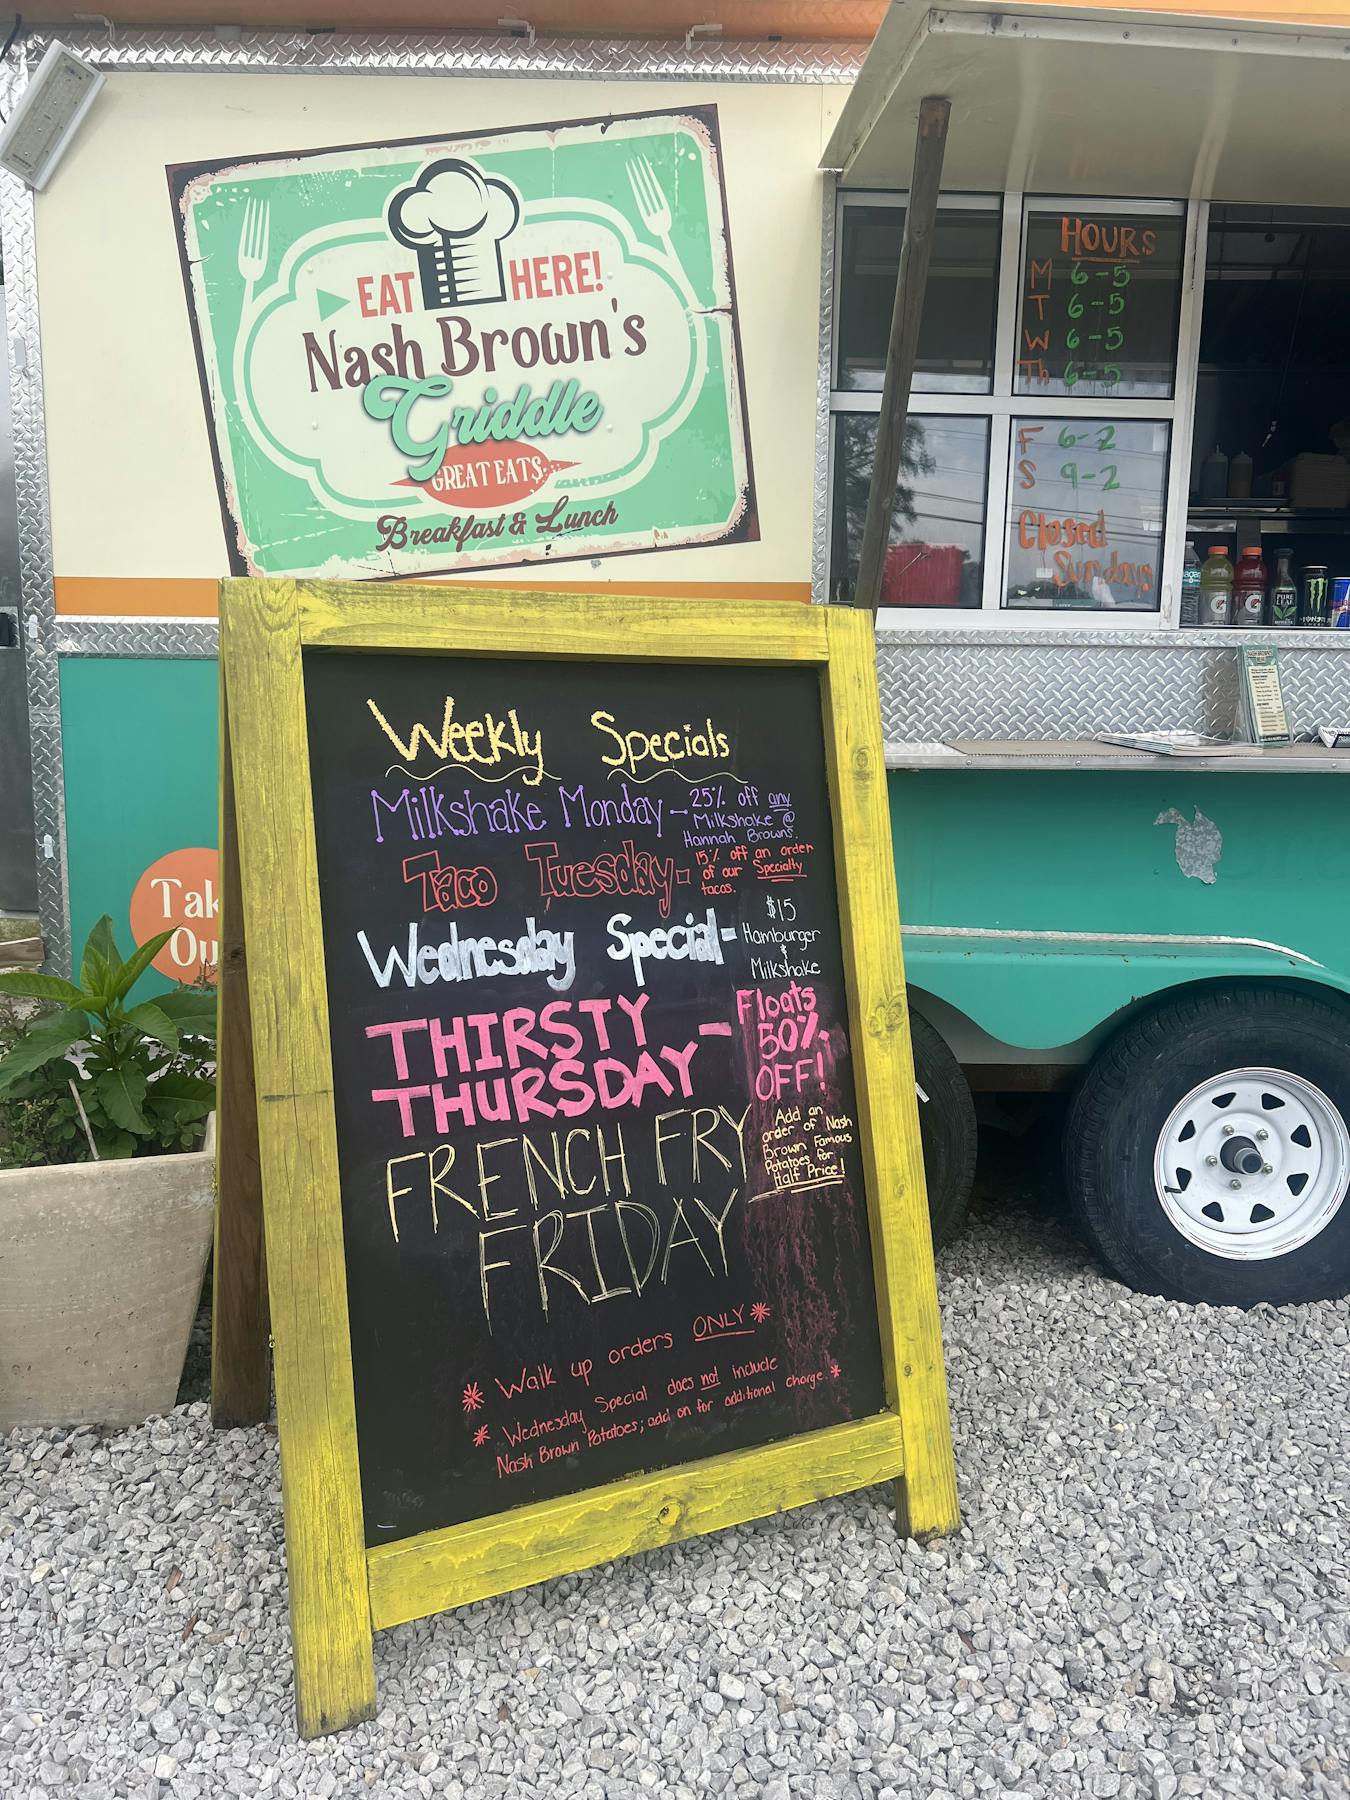 EAT HERE!
Nash Brown's
Griddle
GREAT EATS
Breakfast & Lunch
HOURS
M 6-5
T 6-5
W 6-5
Th 6-5
F 6-2
S 9-2
Closed
Sundays
Weekly Specials
Milkshake Monday - 25% off any
Milkshake @
Hannah Browns.
Taco Tuesday - 15% off an order
of our Specialty
tacos.
Wednesday Special - $15
Hamburger
&
Milkshake
THIRSTY
THURSDAY - Floats
50%
OFF!
FRENCH FRY
FRIDAY
Add an
order of Nash
Brown Famous
Potatoes for
Half Price!
* Walk up orders ONLY *
* Wednesday Special does not include
Nash Brown Potatoes; add on for additional charge. *
Tak
Ou
PURE
LEAF